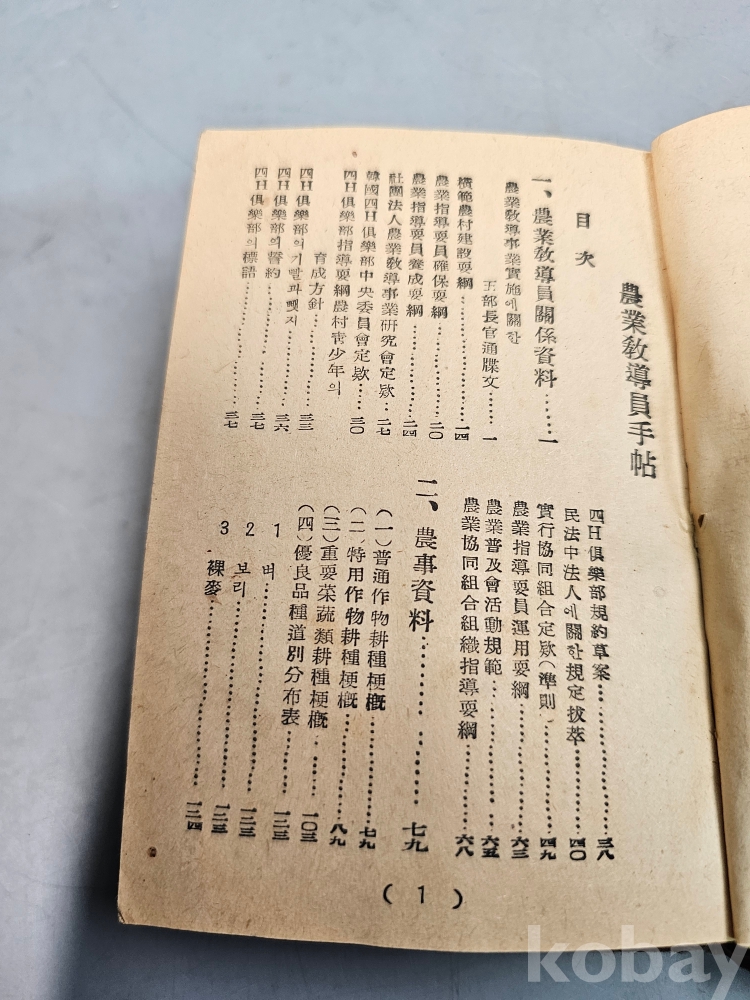 農業敎導員手帖
目次
一、農業敎導員關係資料……一
農業敎導事業實施에關한
王部長官通牒文……一
模範農村建設要綱……一四
農業指導要員確保要綱……二〇
農業指導要員養成要綱……二四
社團法人農業敎導事業硏究會定款…二七
韓國四H俱樂部中央委員會定款……三〇
四H俱樂部指導要綱農村靑少年의
育成方針……三三
四H俱樂部의기빨과뺏지……三六
四H俱樂部의誓約……三七
四H俱樂部의標語……三七
四H俱樂部規約草案……三八
民法中法人에關한規定拔萃……四〇
實行協同組合定款(準則)……四九
農業指導要員運用要綱……六三
農業普及會活動規範……六五
農業協同組合組織指導要綱……六八
二、農事資料……七九
(一)普通作物耕種梗槪……七九
(二)特用作物耕種梗槪……八九
(三)重要菜蔬類耕種梗槪……一〇三
(四)優良品種道別分布表……一二三
1 벼……一二三
2 보리……一二三
3 裸麥……一二四
(1)
kobay